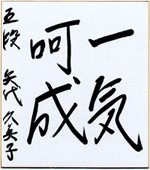 一気
呵成
五段 矢代久美子